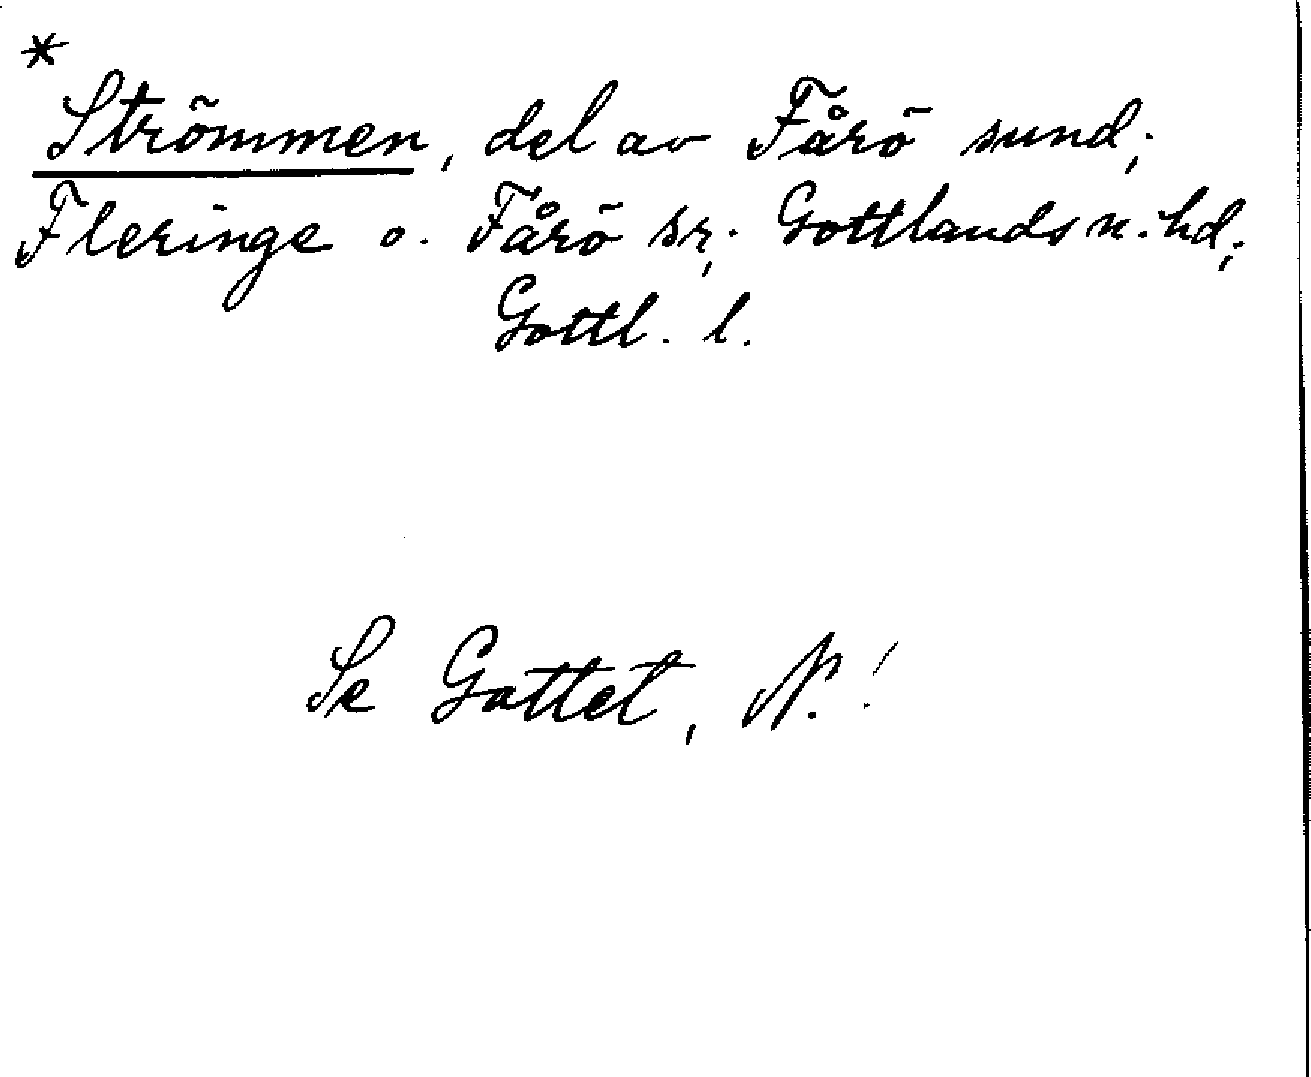 *
Strömmen, del av Fårö sund;
Fleringe o. Fårö sr, Gottlands n. hd;
Gottl. l.
Se Gattet, N.!